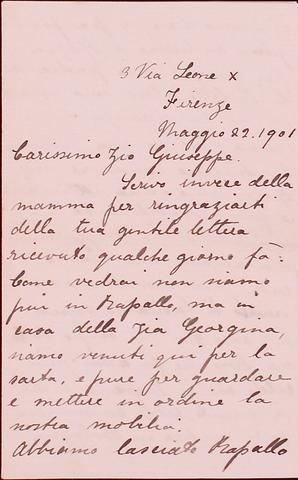 3 Via Leone X
Firenze
Maggio 22. 1901
Carissimo Zio Giuseppe.
Scrivo invece della
mamma per ringraziarti
della tua gentile lettera
ricevuto qualche giorno fà.
Come vedrai non siamo
piu in Rapallo, ma in
casa della Zia Georgina,
siamo venuti qui per la
sarta, e pure per guardare
e mettere in ordine la
nostra mobilia.
Abbiamo lasciato Rapallo